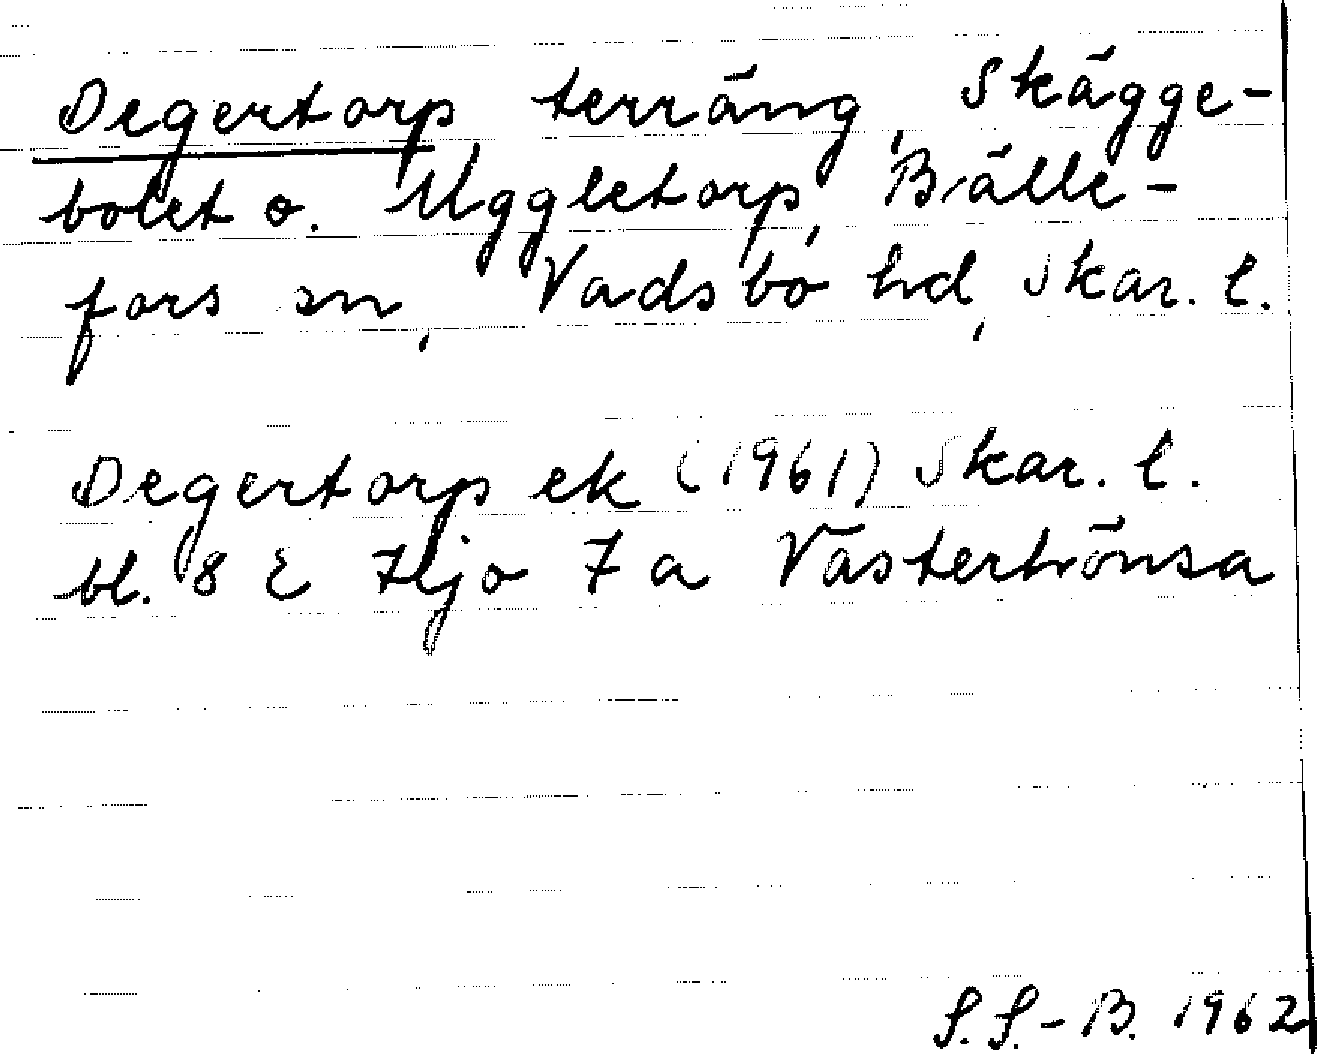 Degertorp terräng, Skägge-
bolet o. Uggletorp, Bälle-
fors sn, Vadsbo hd, Skar. l.
Degertorp ek (1961) Skar. l.
bl. 8 E Hjo 7 a Västerhönsa
S.S.-B. 1962